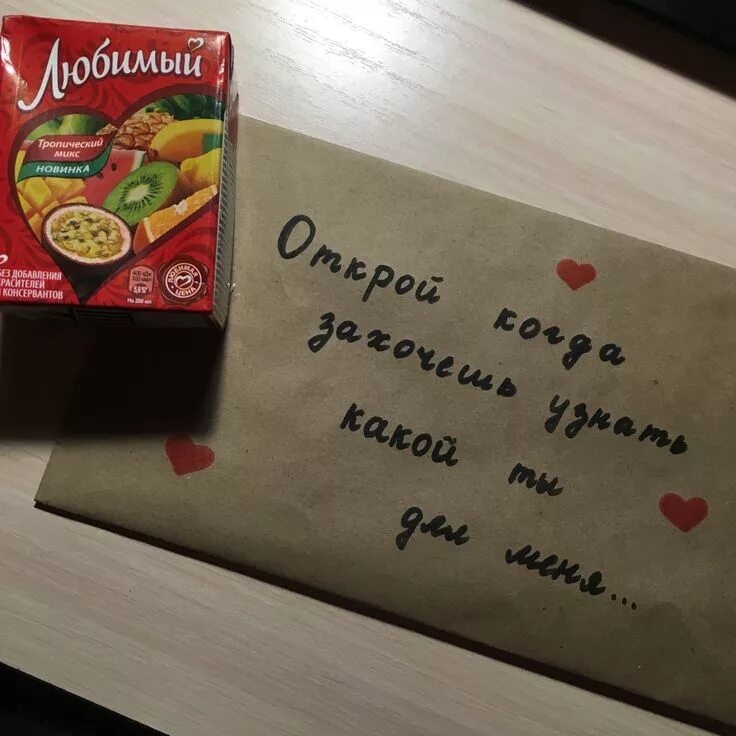 Любимый
Тропический
микс
НОВИНКА
БЕЗ ДОБАВЛЕНИЯ
КРАСИТЕЛЕЙ
И КОНСЕРВАНТОВ
На 200 мл
ЛЮБИМАЯ
ЦЕНА
Открой когда
захочешь узнать
какой ты
для меня...